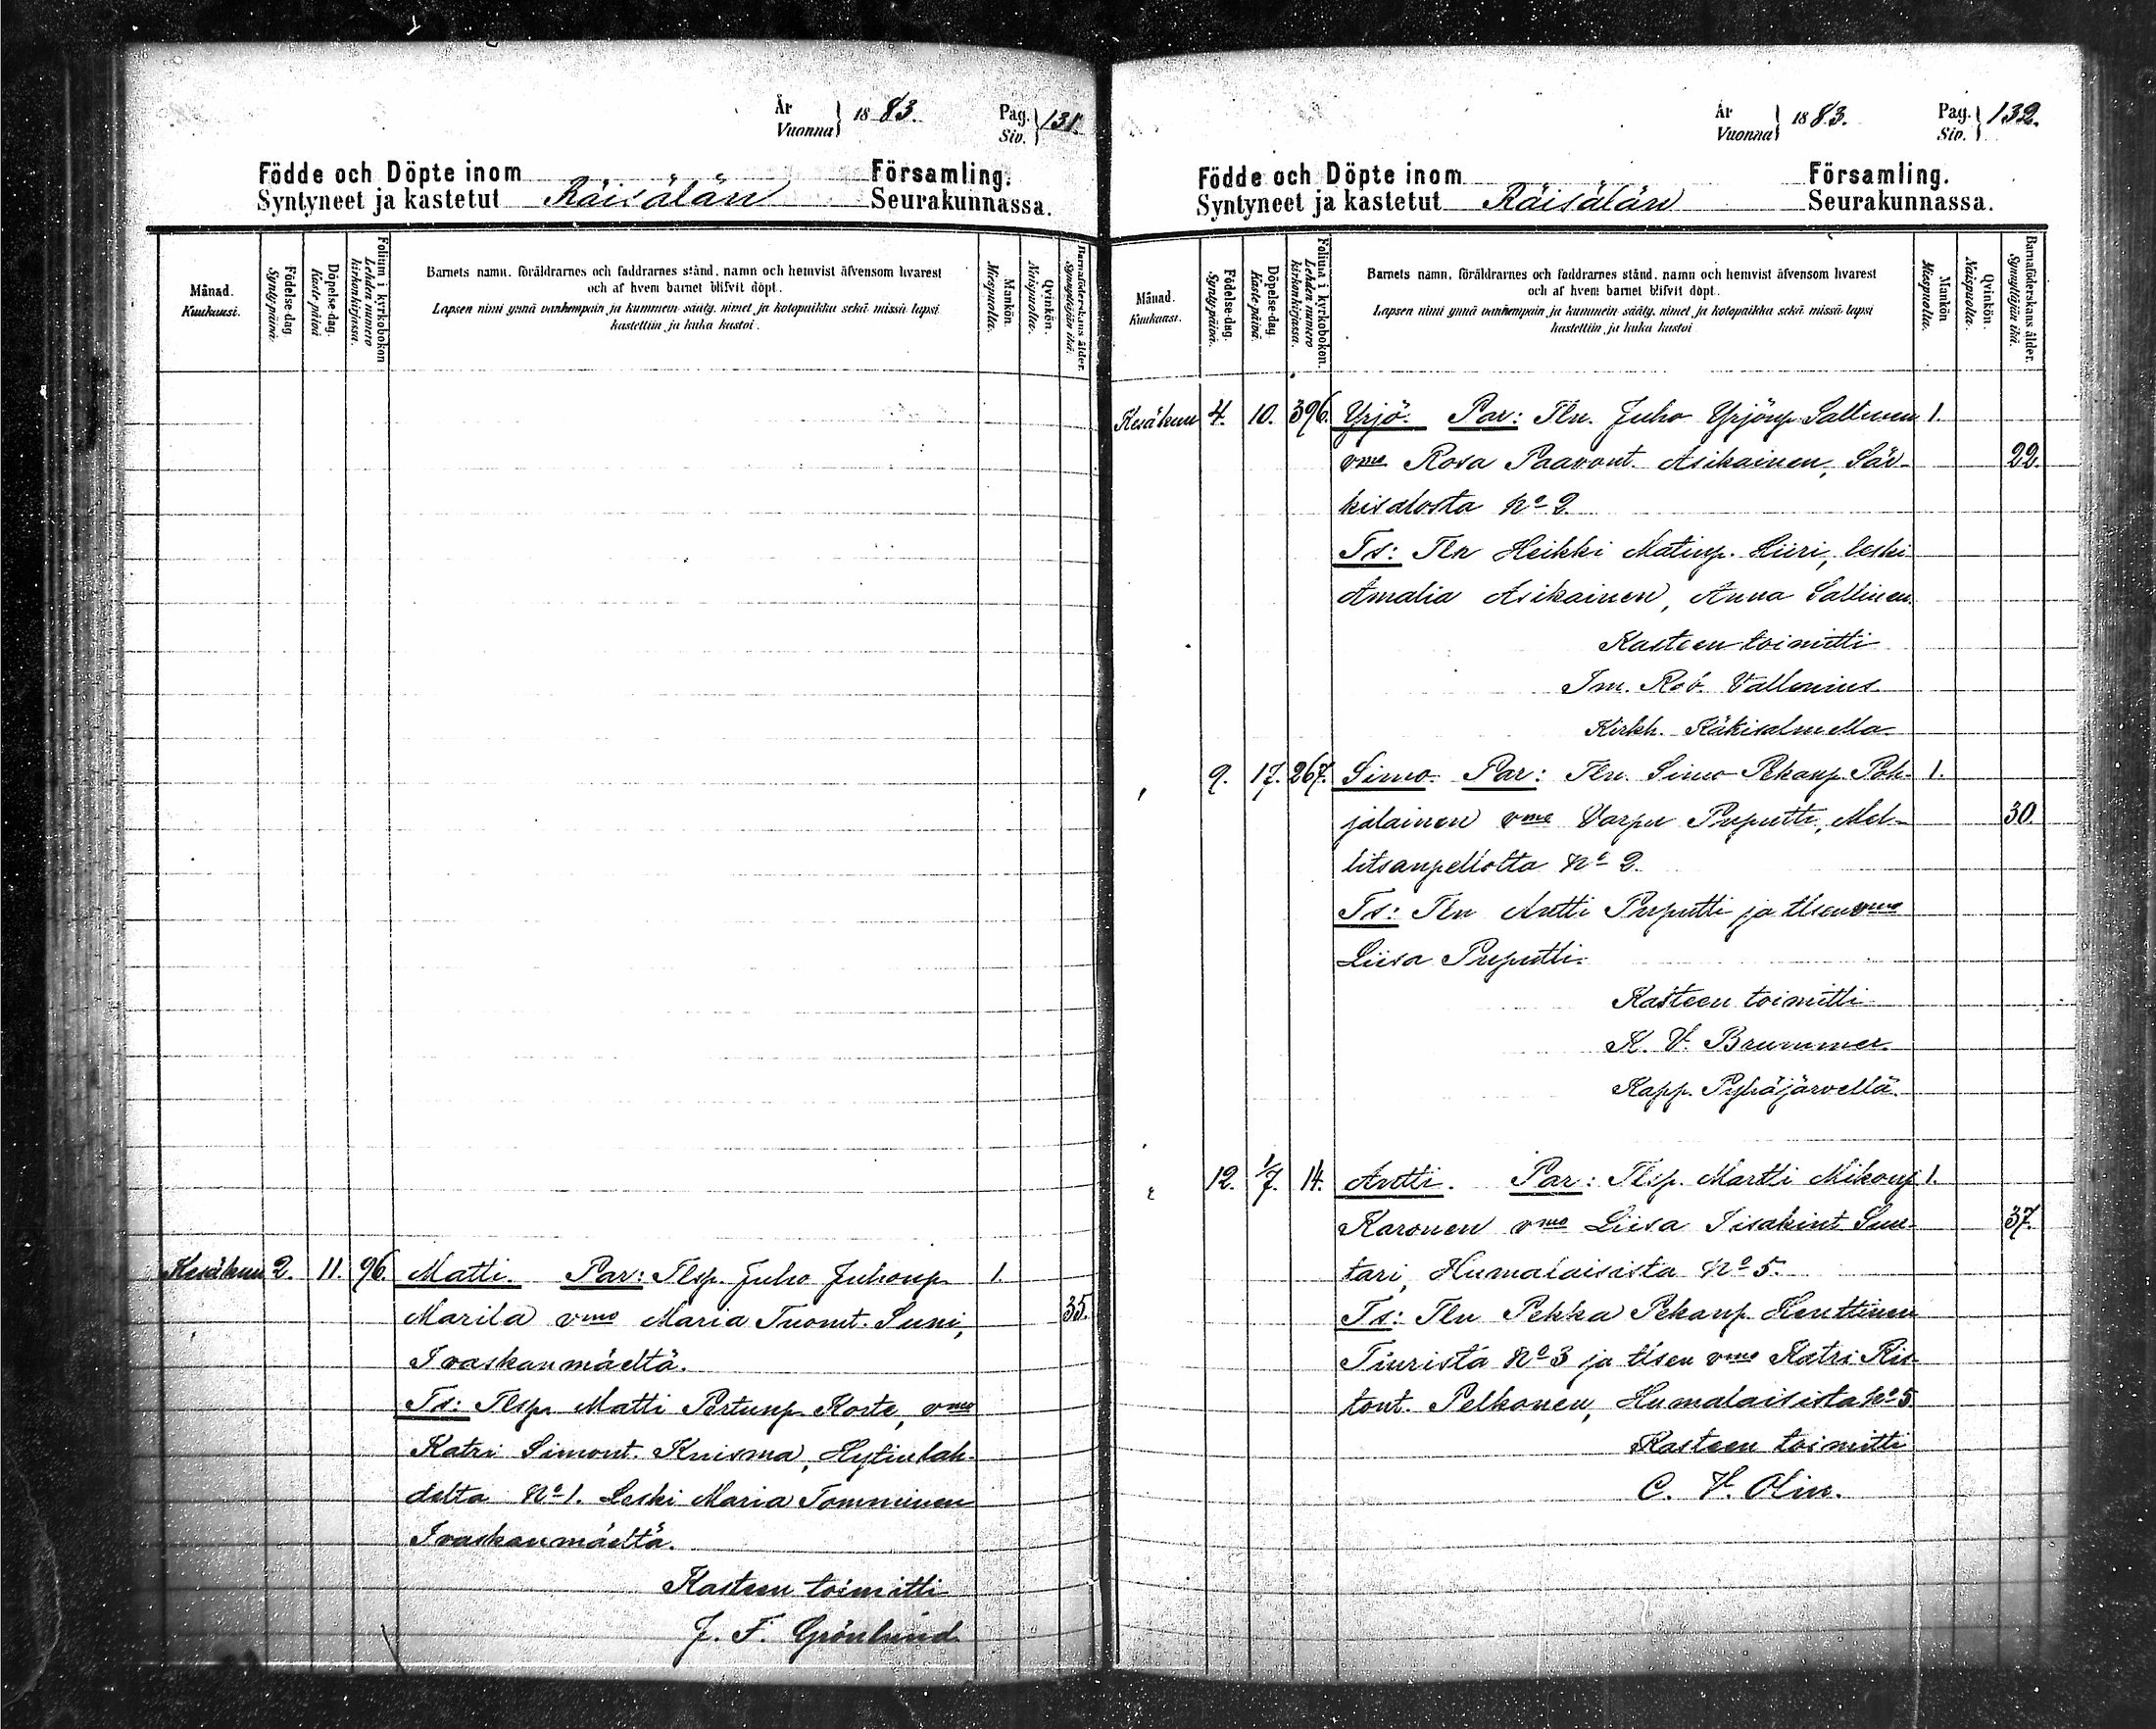 År
Vuonna } 1883. Pag.
Siv. } 131.
Födde och Döpte inom Församling.
Syntyneet ja kastetut Räisälän Seurakunnassa.
Månad.
Kuukausi.
Födelse-dag.
Syntypäivä.
Döpelse-dag.
Kastepäivä
Folium i kyrkoboken
Lehden numero kirkonkirjassa.
Barnets namn, föräldrarnes och faddrarnes stånd, namn och hemvist äfvensom hvarest
och af hvem barnet blifvit döpt.
Lapsen nimi ynnä vanhempain ja kummein sääty, nimet ja kotopaikka sekä missä lapsi
kastettiin ja kuka kastoi.
Mankön.
Miespuolta.
Qvinkön.
Naispuolta.
Barnaföderskans ålder.
Synnyttäjän ikä.
Kesäkuu 2. 11. 96. Matti. Par: Tlsp. Juho Juhonp. 1.
Marila vmo Maria Tuomt. Suni, 35.
Ivaskanmäeltä.
Ts: Tlsp. Matti Pertunp. Korte, vmo
Katri Simont. Kuisma, Hytinlah-
delta No 1. Leski Maria Tomminen
Ivaskanmäeltä.
Kasteen toimitti
J. F. Grönlund
År
Vuonna } 1883. Pag.
Siv. } 132.
Födde och Döpte inom Församling.
Syntyneet ja kastetut Räisälän Seurakunnassa.
Månad.
Kuukausi.
Födelse-dag.
Syntypäivä.
Döpelse-dag.
Kastepäivä.
Folium i kyrkoboken.
Lehden numero kirkonkirjassa.
Barnets namn, föräldrarnes och faddrarnes stånd, namn och hemvist äfvensom hvarest
och af hvem barnet blifvit döpt.
Lapsen nimi ynnä vanhempain ja kummein sääty, nimet ja kotopaikka sekä missä lapsi
kastettiin ja kuka kastoi
Mankön
Miespuolta.
Qvinkön.
Naispuolta.
Barnaföderskans ålder.
Synnyttäjän ikä.
Kesäkuu 4. 10. 396. Yrjö. Par: Tln. Juho Yrjönp Sallinen 1.
vmo Rosa Paavont. Asikainen, Sär- 22.
kisalosta No 2.
Ts: Tln Heikki Matinp. Hiiri, leski
Amalia Asikainen, Anna Sallinen.
Kasteen toimitti
Im. Rob. Vallenius
Kirkh. Käkisalmella
9. 17. 267. Simo. Par: Tln. Simo Pekanp. Poh- 1.
jalainen vmo Varpu Puputti, Mel- 30.
litsanpellolta No 2.
Ts: Tln Antti Puputti ja tlsen vmo
Liisa Puputti.
Kasteen toimitti
K. V. Brummer
Kapp. Pyhäjärvellä.
12. 1/7. 14. Antti. Par: Tlsp. Martti Mikonp 1.
Karonen vmo Liisa Iisakint Sun- 37.
tari, Humalaisista No 5.
Ts: Tln Pekka Pekanp. Henttinen
Tiuristä No 3 ja tlsen vmo Katri Ris-
tont. Pelkonen, Humalaisista No 5
Kasteen toimitti
C. V. Olin.